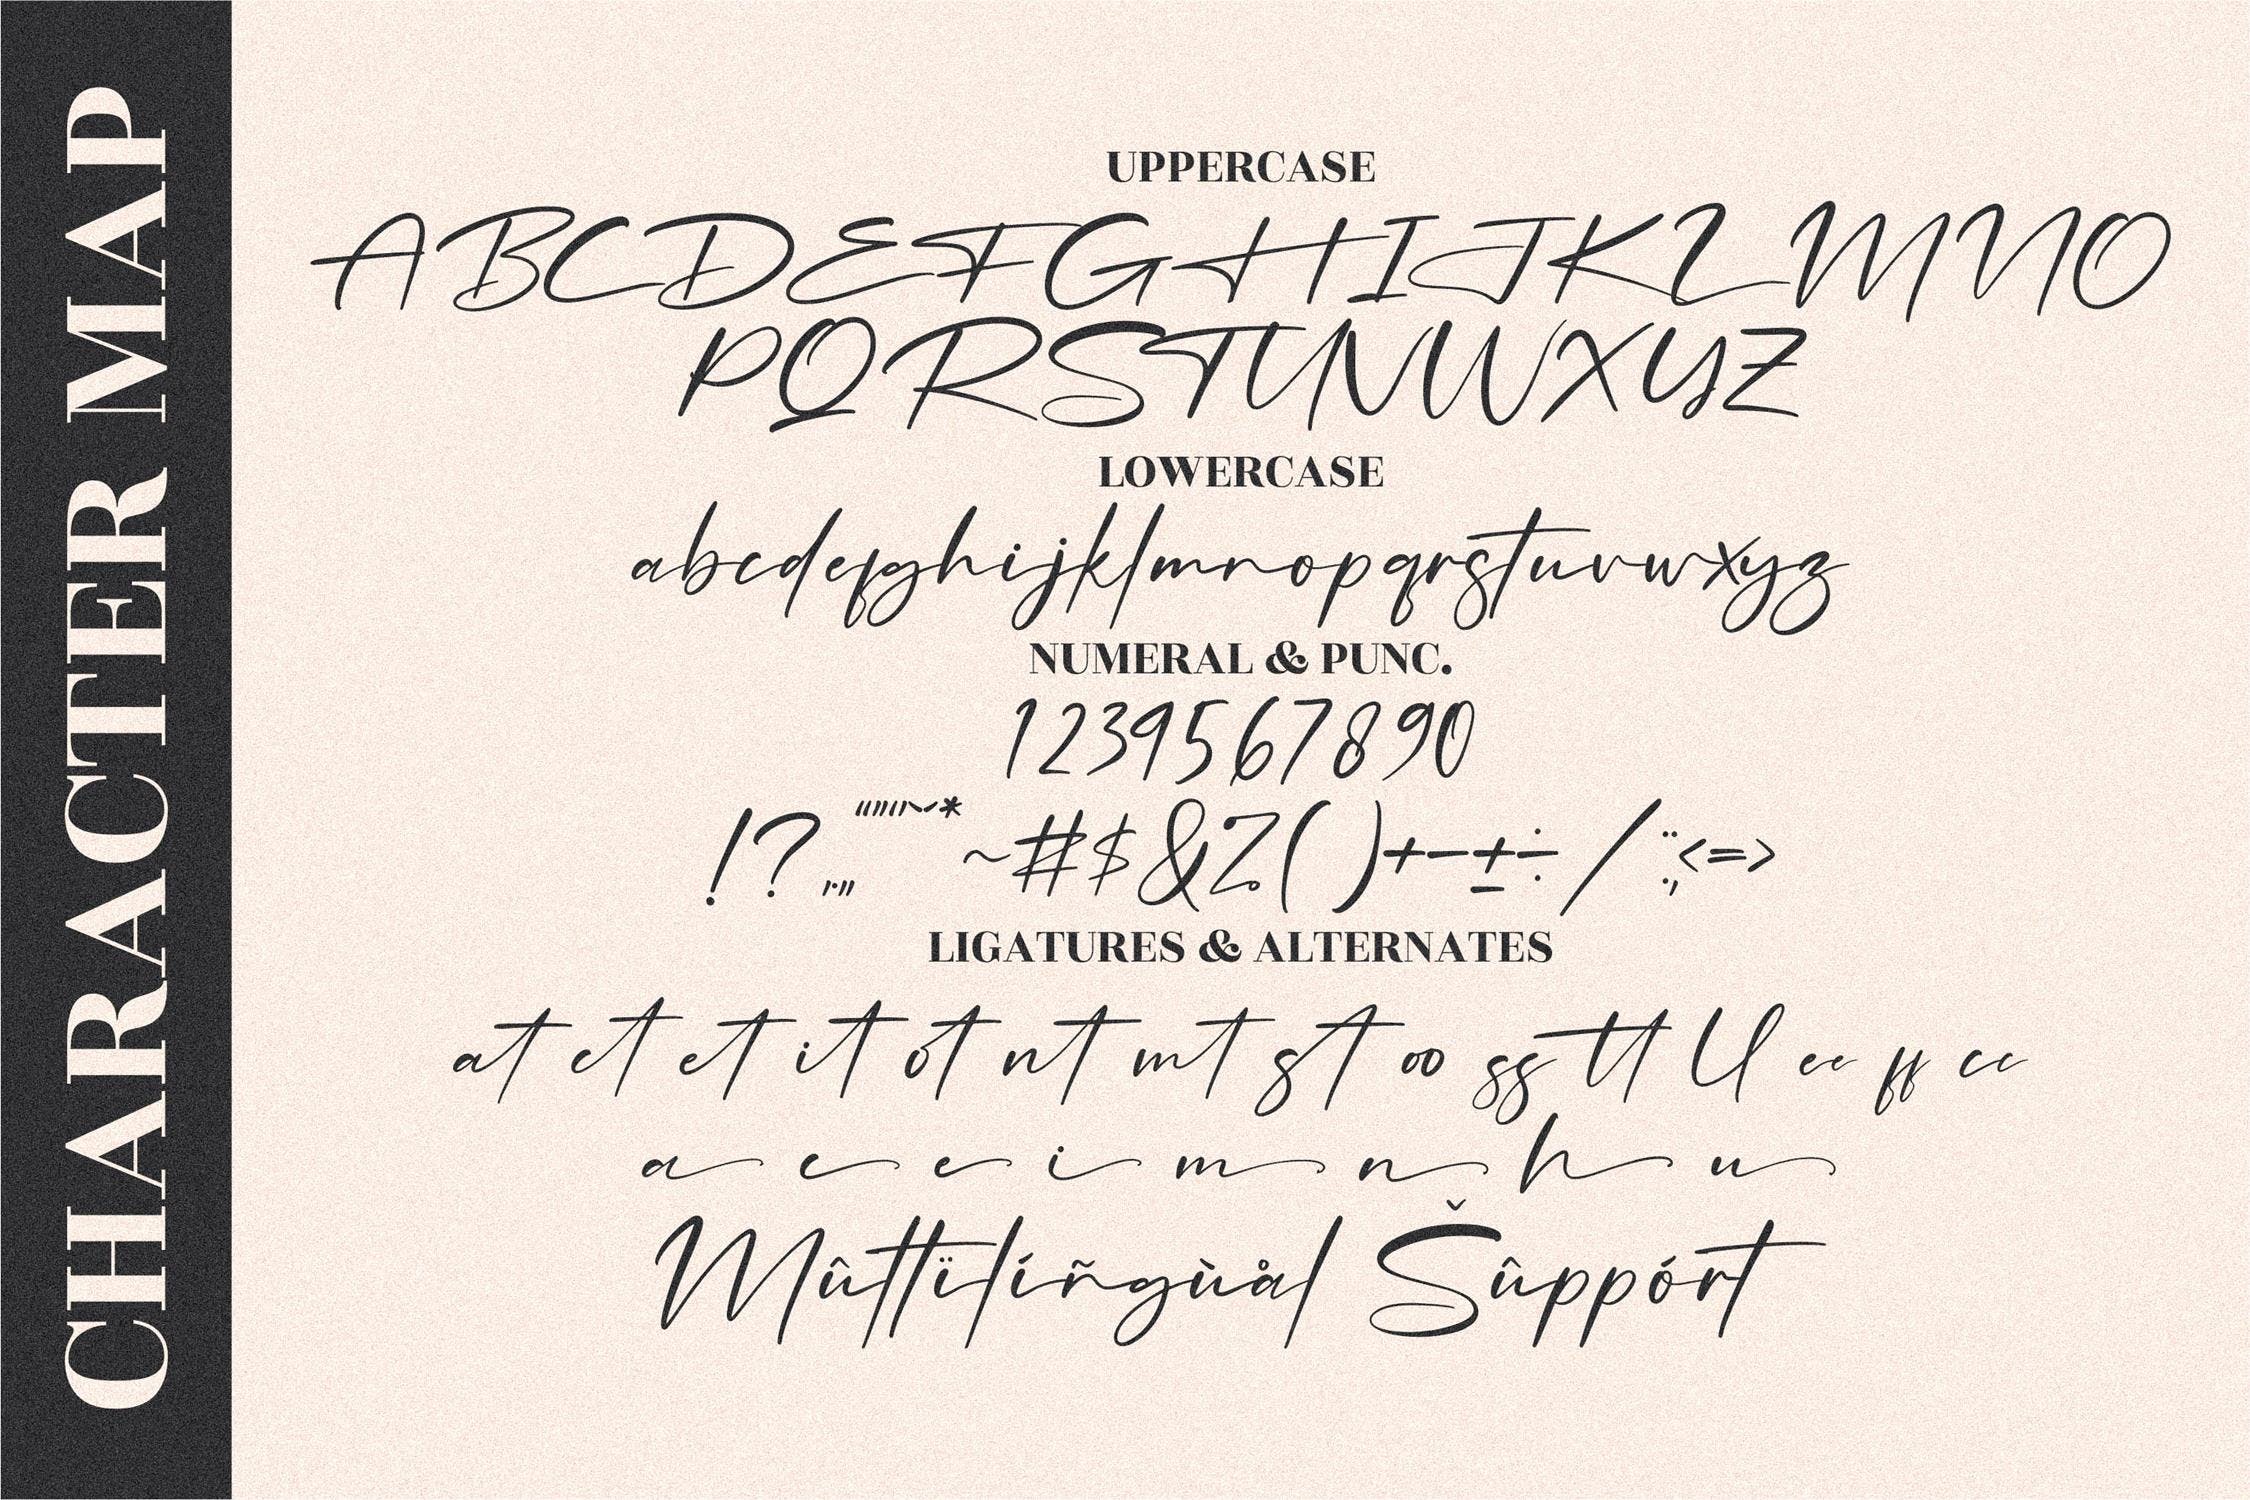 CHARACTER MAP
UPPERCASE
ABCDEFGHIJKLMNO
PQRSTUVWXYZ
LOWERCASE
abcdefghijklmnopqrstuvwxyz
NUMERAL & PUNC.
1234567890
!? ~#$&%()+-±÷/<=>
LIGATURES & ALTERNATES
at ct et it ot nt mt st oo ss tt ll ee ff cc
a c e i m n h u
Mûltïlíñgùål Šûppórt